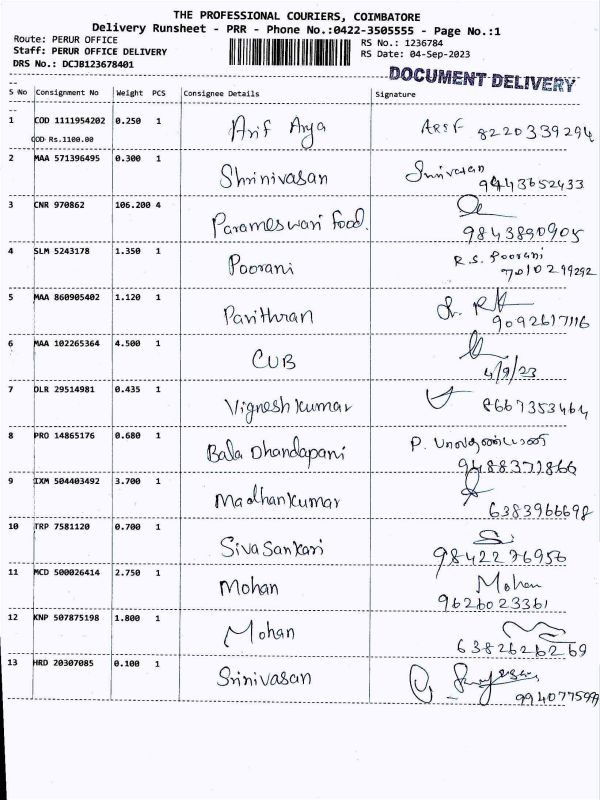 THE PROFESSIONAL COURIERS, COIMBATORE
Delivery Runsheet - PRR - Phone No.:0422-3505555 - Page No.:1
Route: PERUR OFFICE RS No.: 1236784
Staff: PERUR OFFICE DELIVERY RS Date: 04-Sep-2023
DRS No.: DCJB123678401
DOCUMENT DELIVERY
S No Consignment No Weight PCS Consignee Details Signature
1 COD 1111954202 0.250 1 Arif Arya 8220339294
COD Rs.1100.00
2 MAA 571396495 0.300 1 Shrinivasan Srinivasan
9443652433
3 CNR 970862 106.200 4 Parameswari Food.
9843890905
4 SLM 5243178 1.350 1 Poorani R.S. Poorani
7010299292
5 MAA 860905402 1.120 1 Pavithran
9092617116
6 MAA 102265364 4.500 1 CUB
4/9/23
7 DLR 29514981 0.435 1 Vignesh kumar 8667353464
8 PRO 14865176 0.680 1 Bala Dhandapani P. பாலதண்டபாணி
9488371866
9 IXM 504403492 3.700 1 Madhan kumar
6383966698
10 TRP 7581120 0.700 1 Siva Sankari
9842276956
11 MCD 500026414 2.750 1 Mohan Mohan
9626023361
12 KNP 507875198 1.800 1 Mohan
6382626269
13 HRD 20307085 0.100 1 Srinivasan